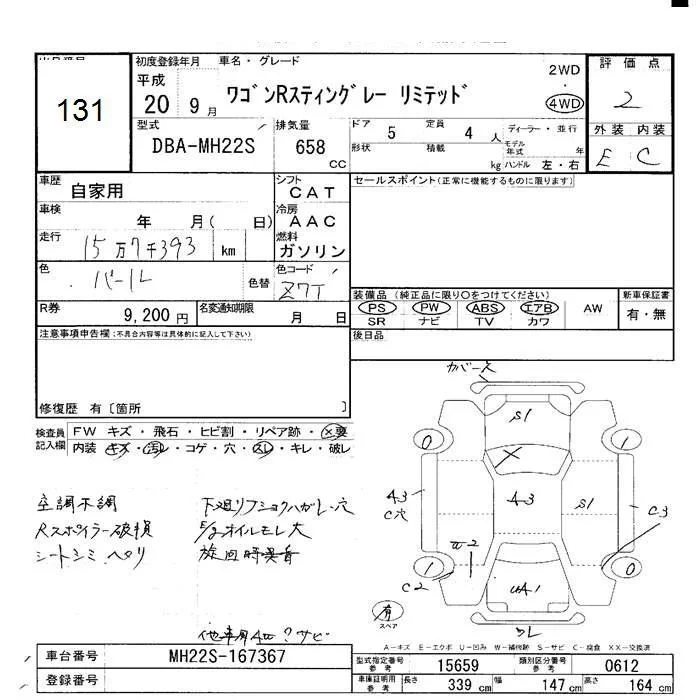 131
初度登録年月 車名・グレード
平成 20 9月
ワゴンRスティングレー リミテッド
2WD
4WD
評価点
2
型式
DBA-MH22S
排気量
658 CC
ドア 5 定員 4 人
形状 積載 kg
ディーラー・並行
モデル年式 年
ハンドル 左・右
外装 内装
E C
車歴 自家用
シフト CAT
セールスポイント(正常に機能するものに限ります)
車検 年 月( 日)
冷房 AAC
走行 15万7千393 km
燃料 ガソリン
色 パール 色替
色コード Z7T
装備品 (純正品に限り○をつけてください)
PS PW ABS エアB AW
SR ナビ TV カワ
新車保証書
有・無
R券 9,200円
名変通知期限 月 日
注意事項申告欄(不具合内容等は具体的に記入して下さい)
後日品
修復歴 有〔箇所 〕
検査員記入欄
FW キズ・飛石・ヒビ割・リペア跡・×要
内装 キズ・汚レ・コゲ・穴・スレ・キレ・破レ
空調不調
Rスポイラー破損
シートシミ、ヘリ
E/gオイルモレ大
カバー欠
S1
0
1
X
A3
C穴
A3
S1
C3
W2
C2
1
0
UA1
有
スペア
A-キズ E-エクボ U-凹み W-補修跡 S-サビ C-腐食 XX-交換済
車台番号 MH22S-167367
登録番号
型式指定番号 参考 15659
類別区分番号 参考 0612
車庫証明用 参考 長さ 339 cm 幅 147 cm 高さ 164 cm